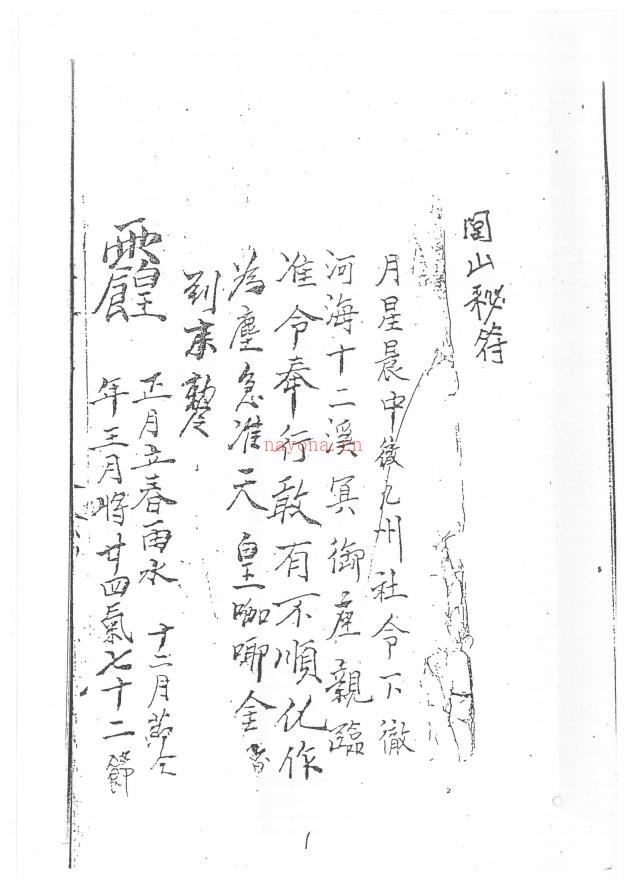 閭山秘符
月星晨中後九州社令下徹
河海十二溪冥御座親臨
准令奉行敢有不順化作
為塵急准天皇咖唧金書
到奉勅令
正月立春雨水 十二月節令
年三月將廿四氣七十二節
nayona.cn
1